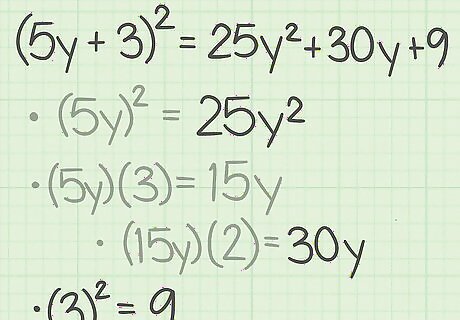 (5y + 3)² = 25y² + 30y + 9
• (5y)² = 25y²
• (5y)(3) = 15y
• (15y)(2) = 30y
• (3)² = 9